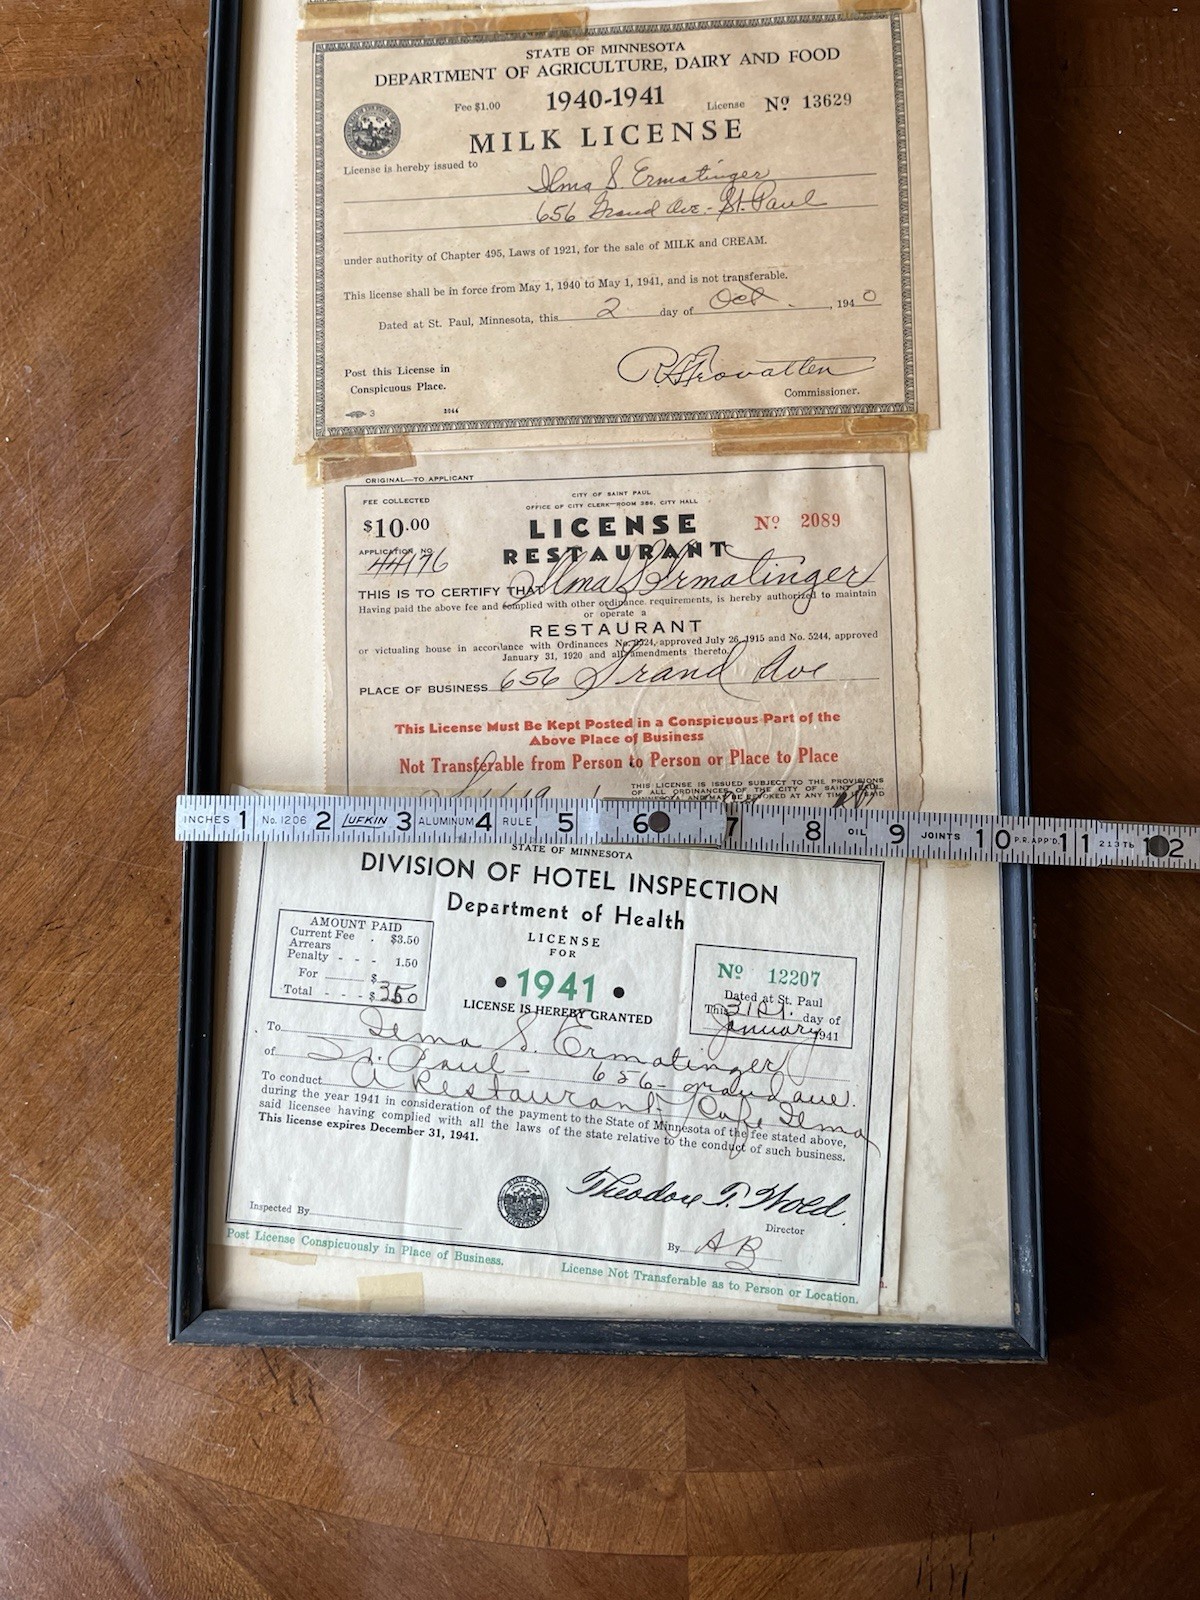 STATE OF MINNESOTA
DEPARTMENT OF AGRICULTURE, DAIRY AND FOOD
Fee $1.00 1940-1941 License Nº 13629
MILK LICENSE
License is hereby issued to
Ilma S. Ermatinger
656 Grand Ave - St. Paul
under authority of Chapter 495, Laws of 1921, for the sale of MILK and CREAM.
This license shall be in force from May 1, 1940 to May 1, 1941, and is not transferable.
Dated at St. Paul, Minnesota, this 2 day of Oct. , 1940
Post this License in
Conspicuous Place.
R A Trovatten
Commissioner.
3 2044
ORIGINAL—TO APPLICANT
FEE COLLECTED
$10.00
APPLICATION NO.
44176
CITY OF SAINT PAUL
OFFICE OF CITY CLERK—ROOM 386, CITY HALL
LICENSE Nº 2089
RESTAURANT
THIS IS TO CERTIFY THAT Ilma S Ermatinger
Having paid the above fee and complied with other ordinance requirements, is hereby authorized to maintain
or operate a
RESTAURANT
or victualing house in accordance with Ordinances No. 3524, approved July 26, 1915 and No. 5244, approved
January 31, 1920 and all amendments thereto.
PLACE OF BUSINESS 656 Grand Ave
This License Must Be Kept Posted in a Conspicuous Part of the
Above Place of Business
Not Transferable from Person to Person or Place to Place
THIS LICENSE IS ISSUED SUBJECT TO THE PROVISIONS
OF ALL ORDINANCES OF THE CITY OF SAINT PAUL,
MINNESOTA AND MAY BE REVOKED AT ANY TIME
INCHES 1 No. 1206 2 LUFKIN 3 ALUMINUM 4 RULE 5 6 7 8 OIL 9 JOINTS 10 P.R. APP'D. 11 12
STATE OF MINNESOTA
DIVISION OF HOTEL INSPECTION
Department of Health
LICENSE
FOR
• 1941 •
LICENSE IS HEREBY GRANTED
AMOUNT PAID
Current Fee . $3.50
Arrears
Penalty - - - 1.50
For $
Total - - - $ 350
Nº 12207
Dated at St. Paul
This 31st. day of
January 1941
To Ilma S. Ermatinger
of St. Paul - 656 - Grand ave.
To conduct A Restaurant / Cafe Ilma
during the year 1941 in consideration of the payment to the State of Minnesota of the fee stated above,
said licensee having complied with all the laws of the state relative to the conduct of such business.
This license expires December 31, 1941.
STATE OF
MINNESOTA
Theodore T. Wold.
Director
Inspected By
By AB
Post License Conspicuously in Place of Business.
License Not Transferable as to Person or Location.